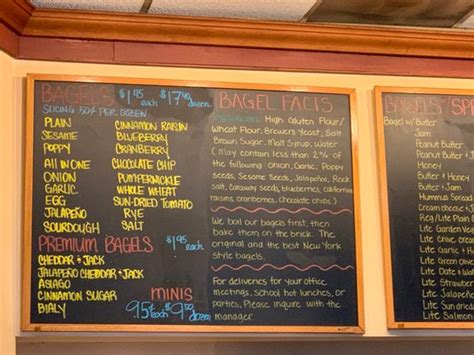 BAGELS $1.45 each $17.40 dozen
SLICING 50¢ PER DOZEN
PLAIN
SESAME
POPPY
ALL IN ONE
ONION
GARLIC
EGG
JALAPEÑO
SOURDOUGH
CINNAMON RAISIN
BLUEBERRY
CRANBERRY
CHOCOLATE CHIP
PUMPERNICKLE
WHOLE WHEAT
SUN-DRIED TOMATO
RYE
SALT
PREMIUM BAGELS $1.95 each
CHEDDAR + JACK
JALAPEÑO CHEDDAR + JACK
ASIAGO
CINNAMON SUGAR
BIALY
MINIS
95¢ each $9.50 dozen
BAGEL FACTS
High Gluten Flour/
Wheat Flour, Brewers Yeast, Salt
Brown Sugar, Malt Syrup, Water
(May contain less than 2% of
the following onion, Garlic, Poppy
seeds, Sesame Seeds, Jalapeños, Rock
salt, caraway seeds, blueberries, california
raisins, cranberries, Chocolate chips)
We boil our bagels first, then
bake them on the brick. The
original and the best New York
style bagels.
For deliveries for your office
meetings, school hot lunches, or
parties, Please inquire with the
manager.
BAGELS SP
Bagel w/ Butter
Jam
Peanut Butter
Peanut Butter +
Butter + Jam
Hummus Spread
Cream cheese + J
Reg/Lite Plain
Lite Garden Veg
Lite Green Onion
Lite Garlic +
Lite Green Olive
Lite Date +
Lite Strawberry
Lite Jalapeño
Lite Sun Dried
Lite Salmon